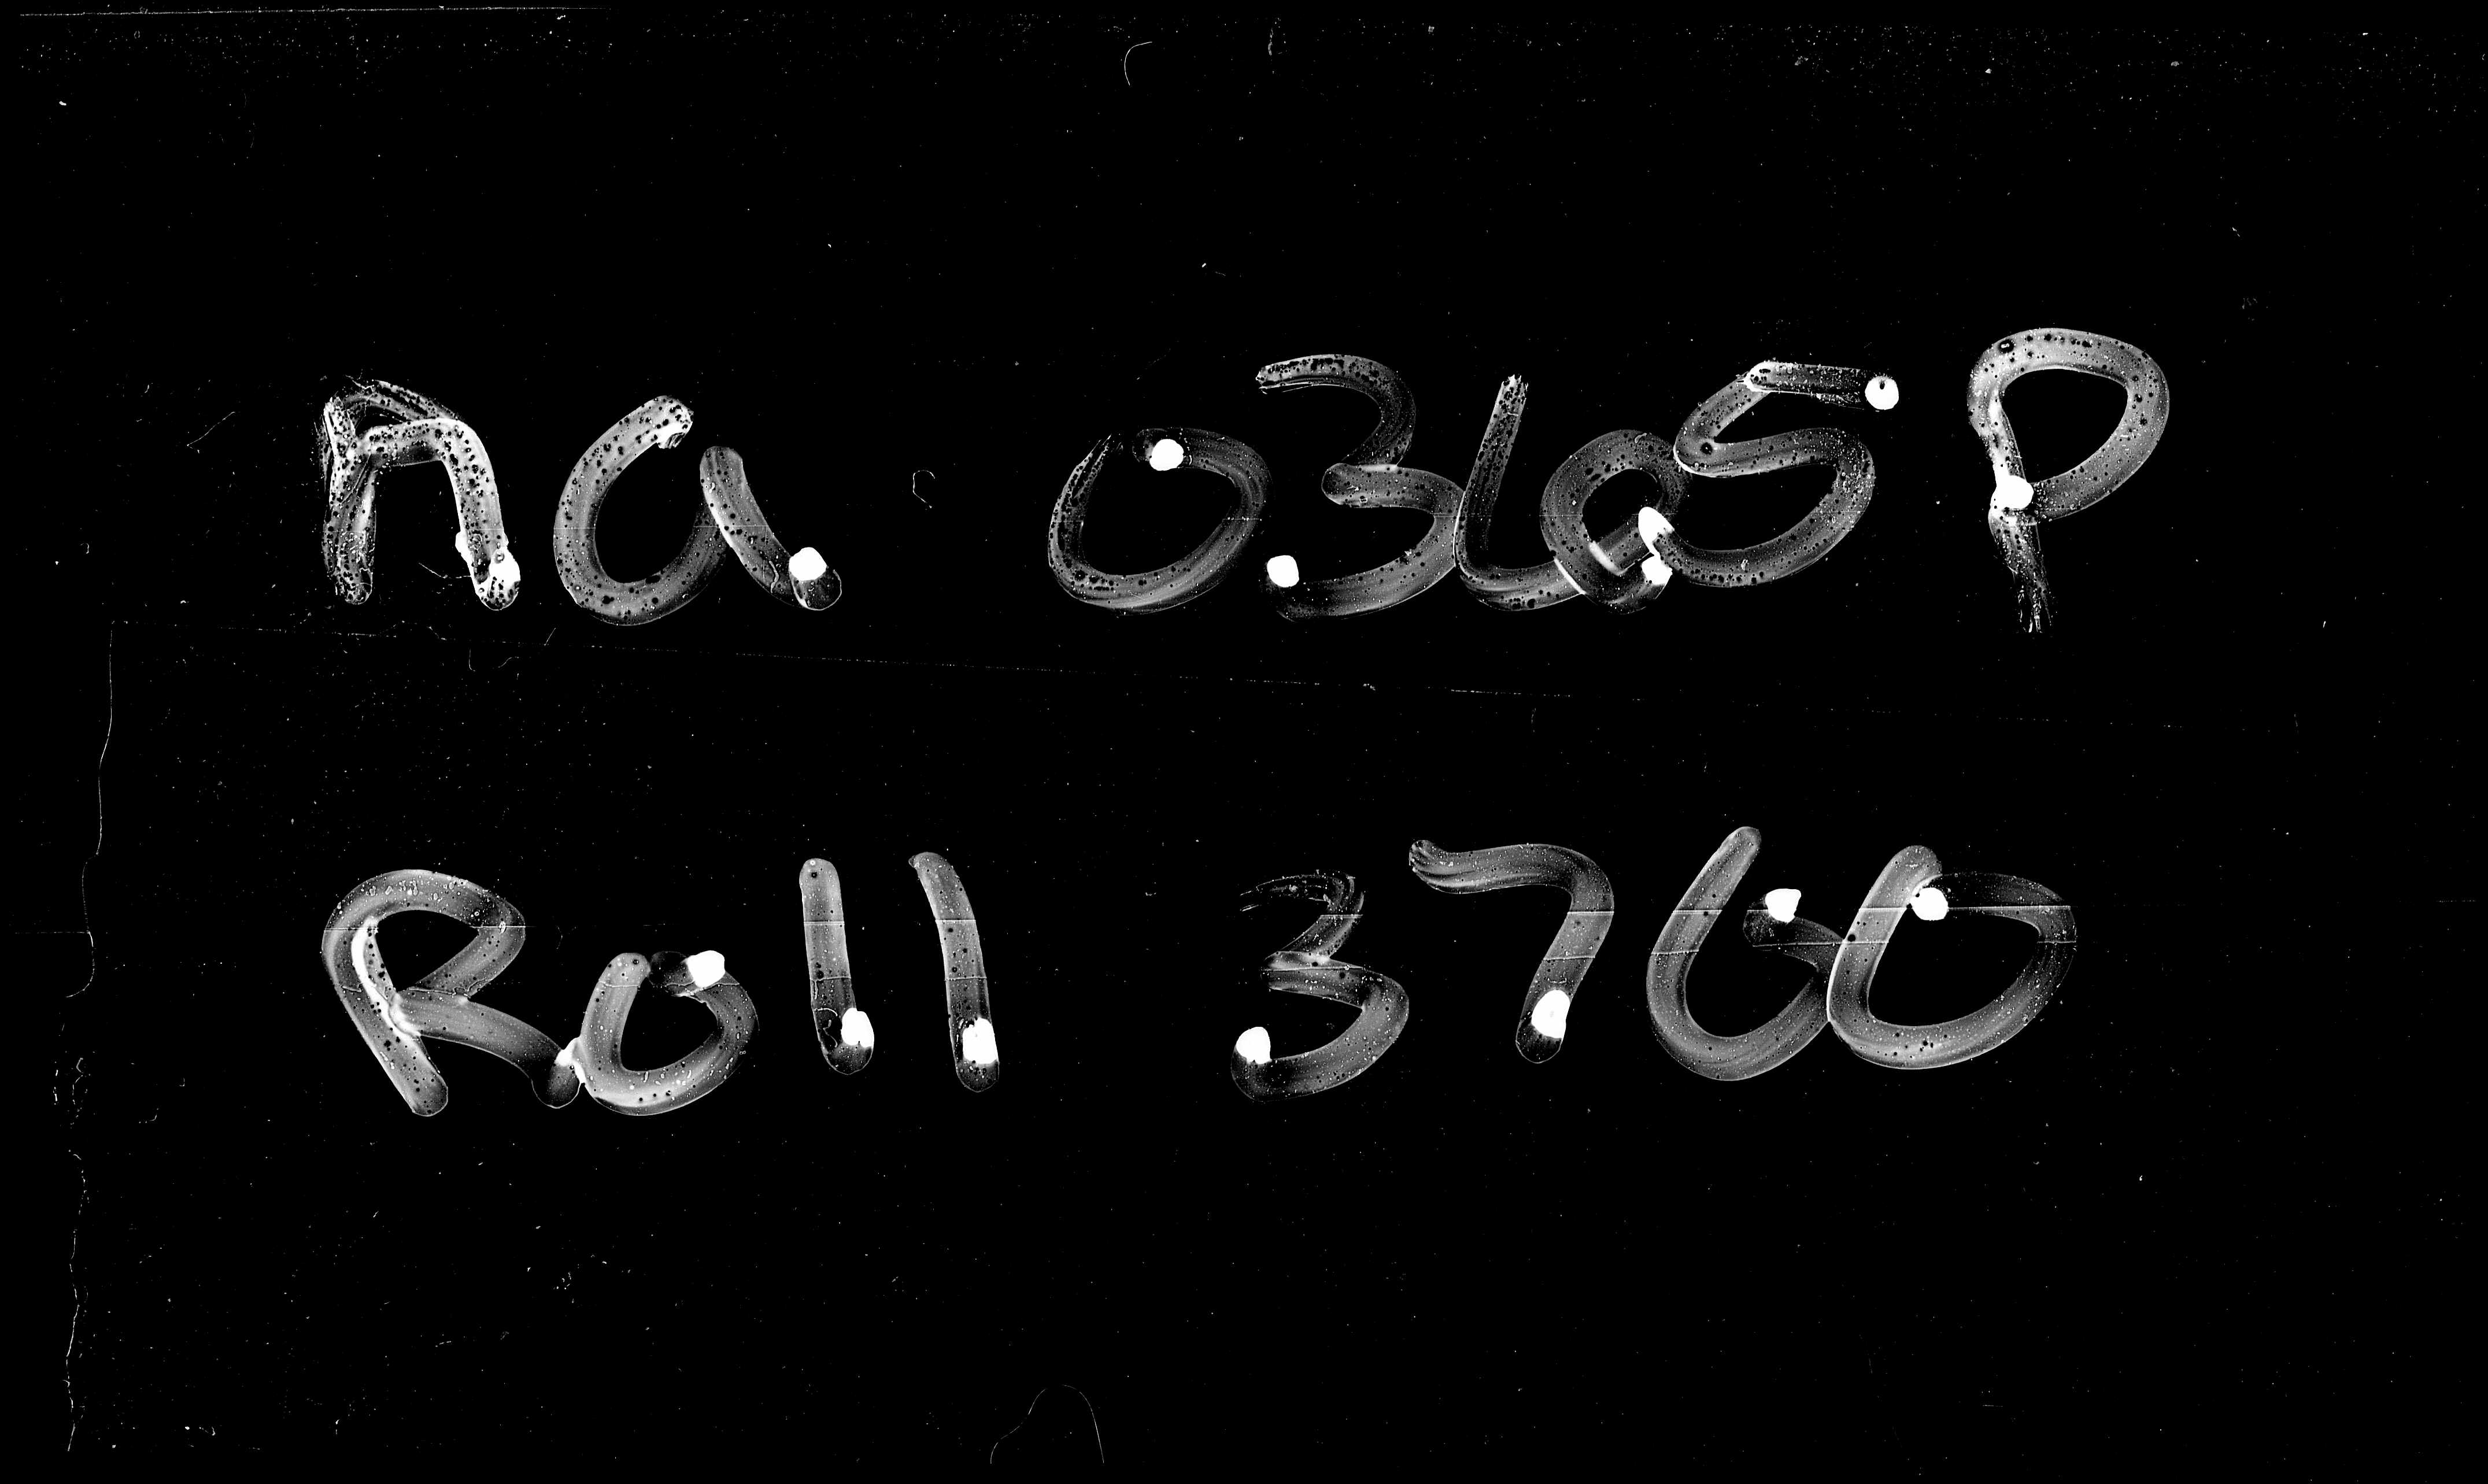 na 0365 P
Roll 3760